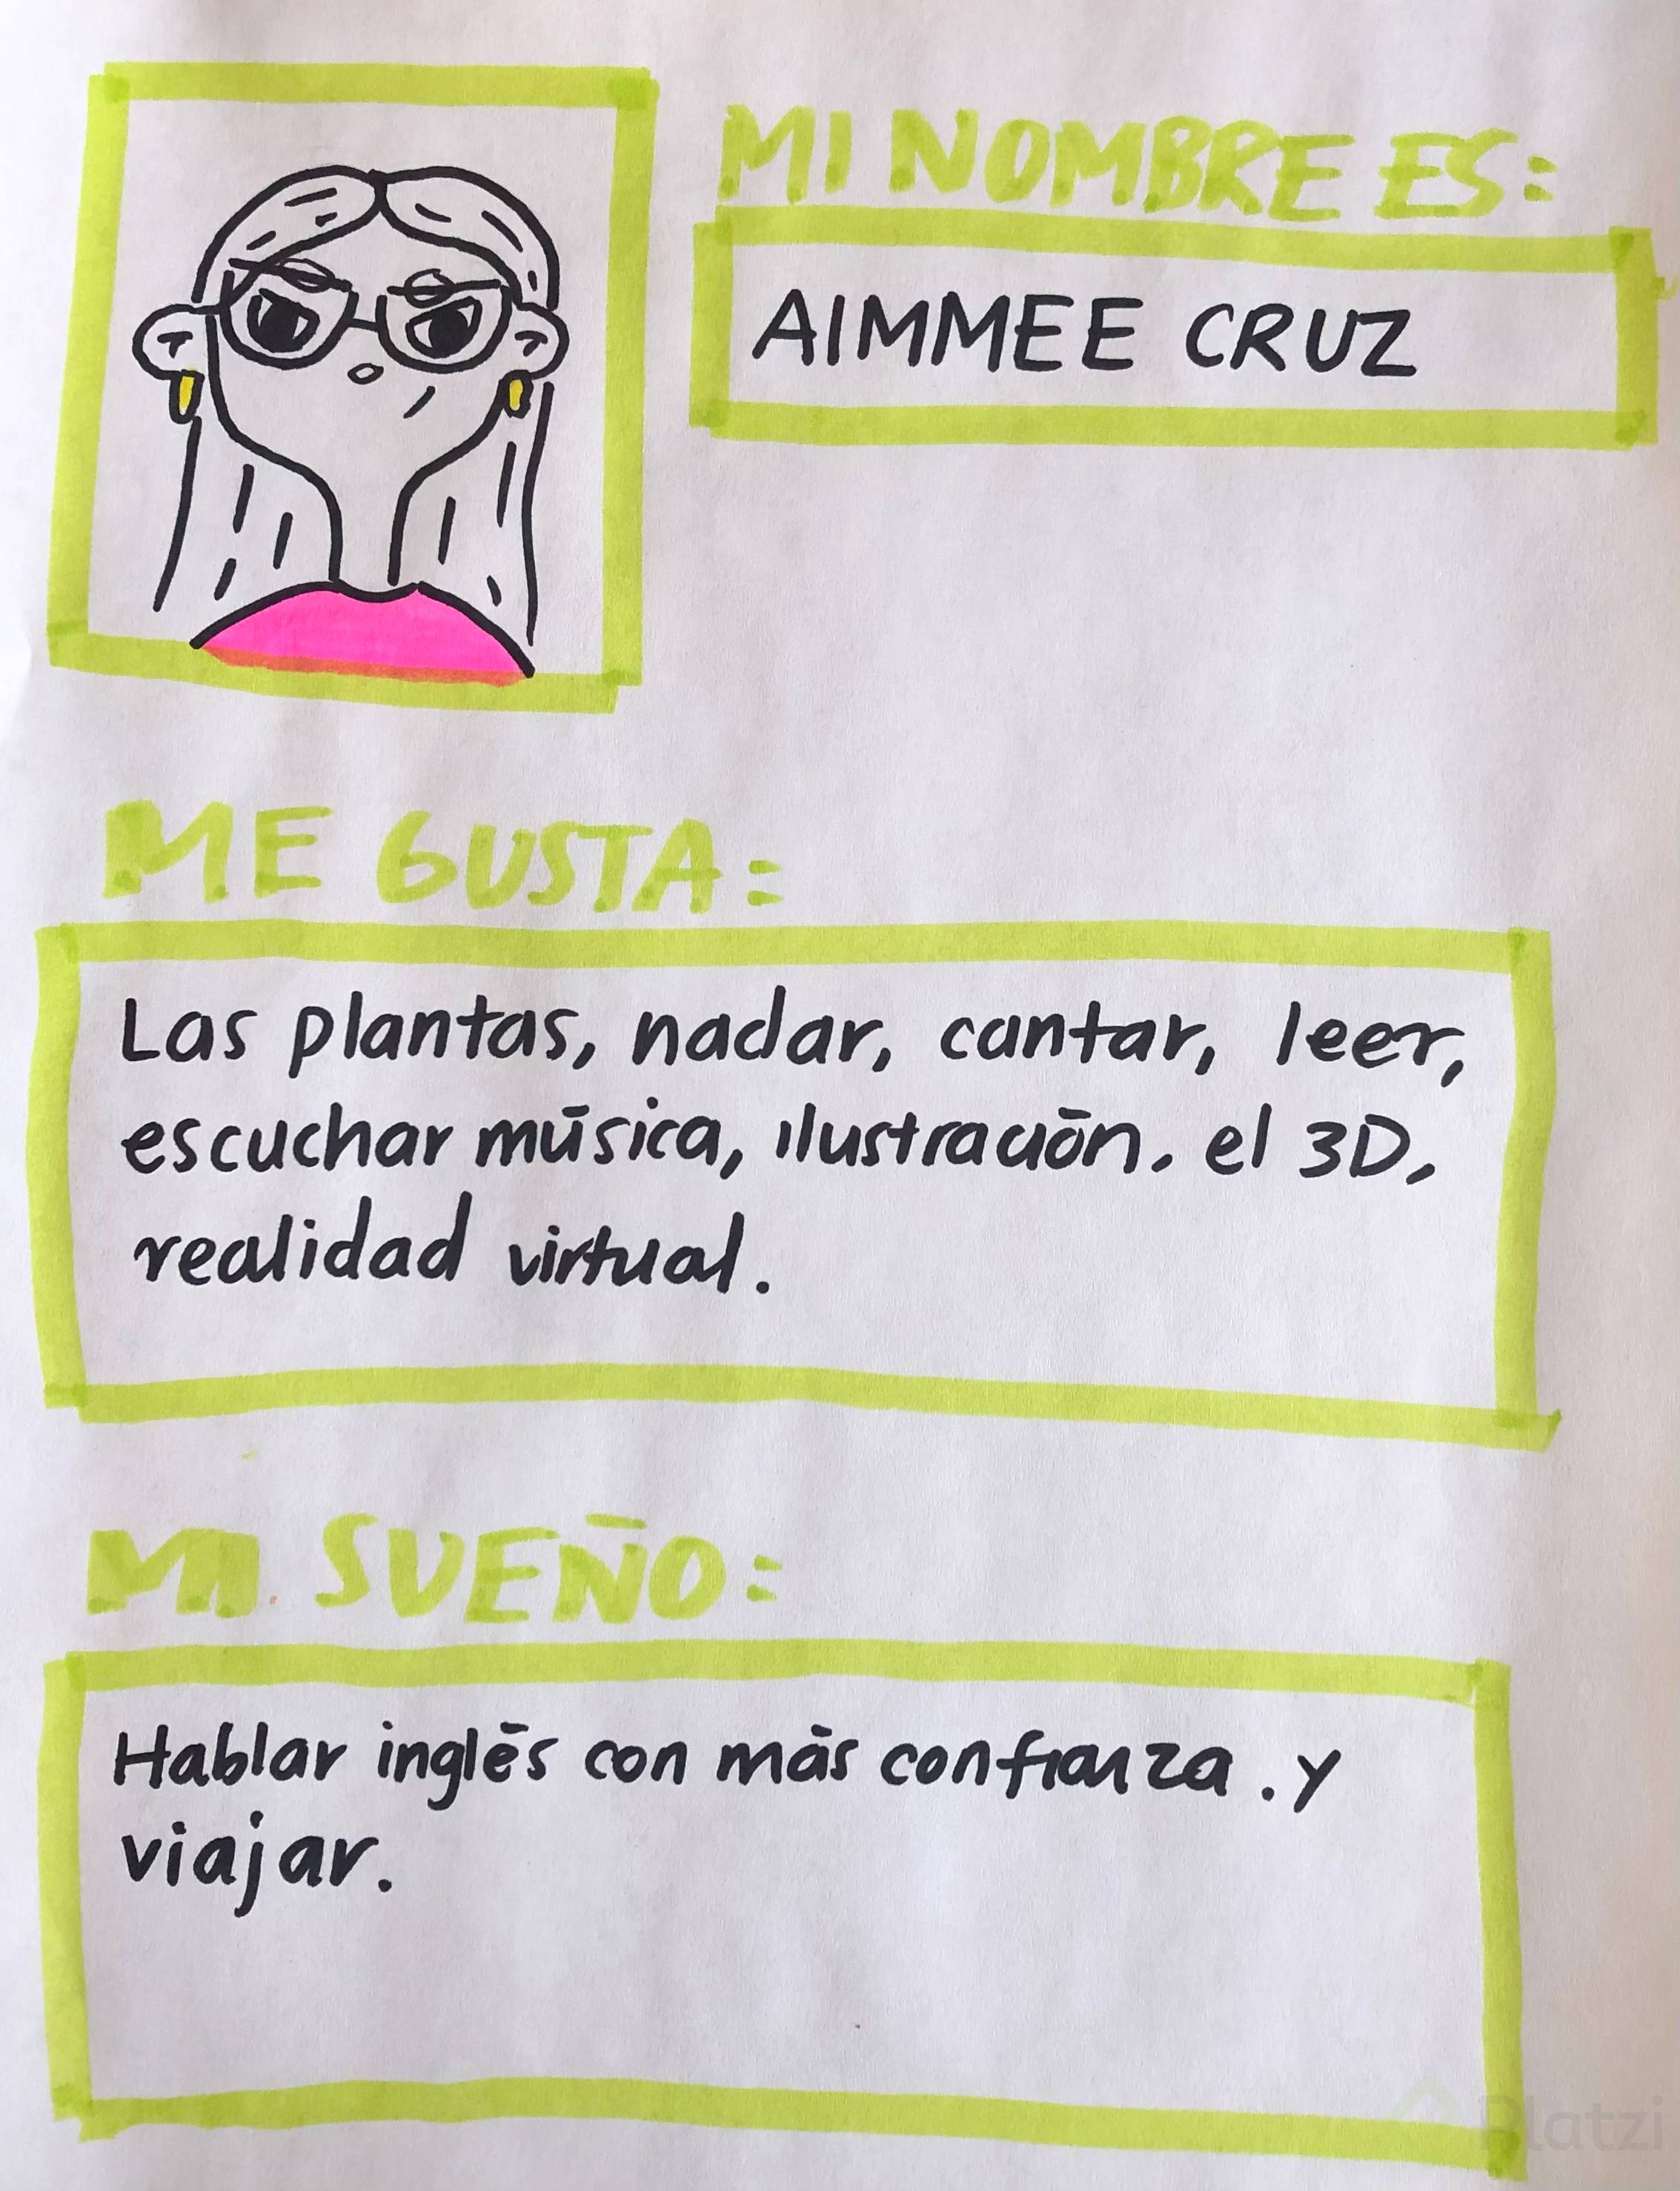 MI NOMBRE ES:
AIMMEE CRUZ
ME GUSTA:
Las plantas, nadar, cantar, leer,
escuchar música, ilustración, el 3D,
realidad virtual.
MI SUEÑO:
Hablar inglés con más confianza. y
viajar.
Platzi